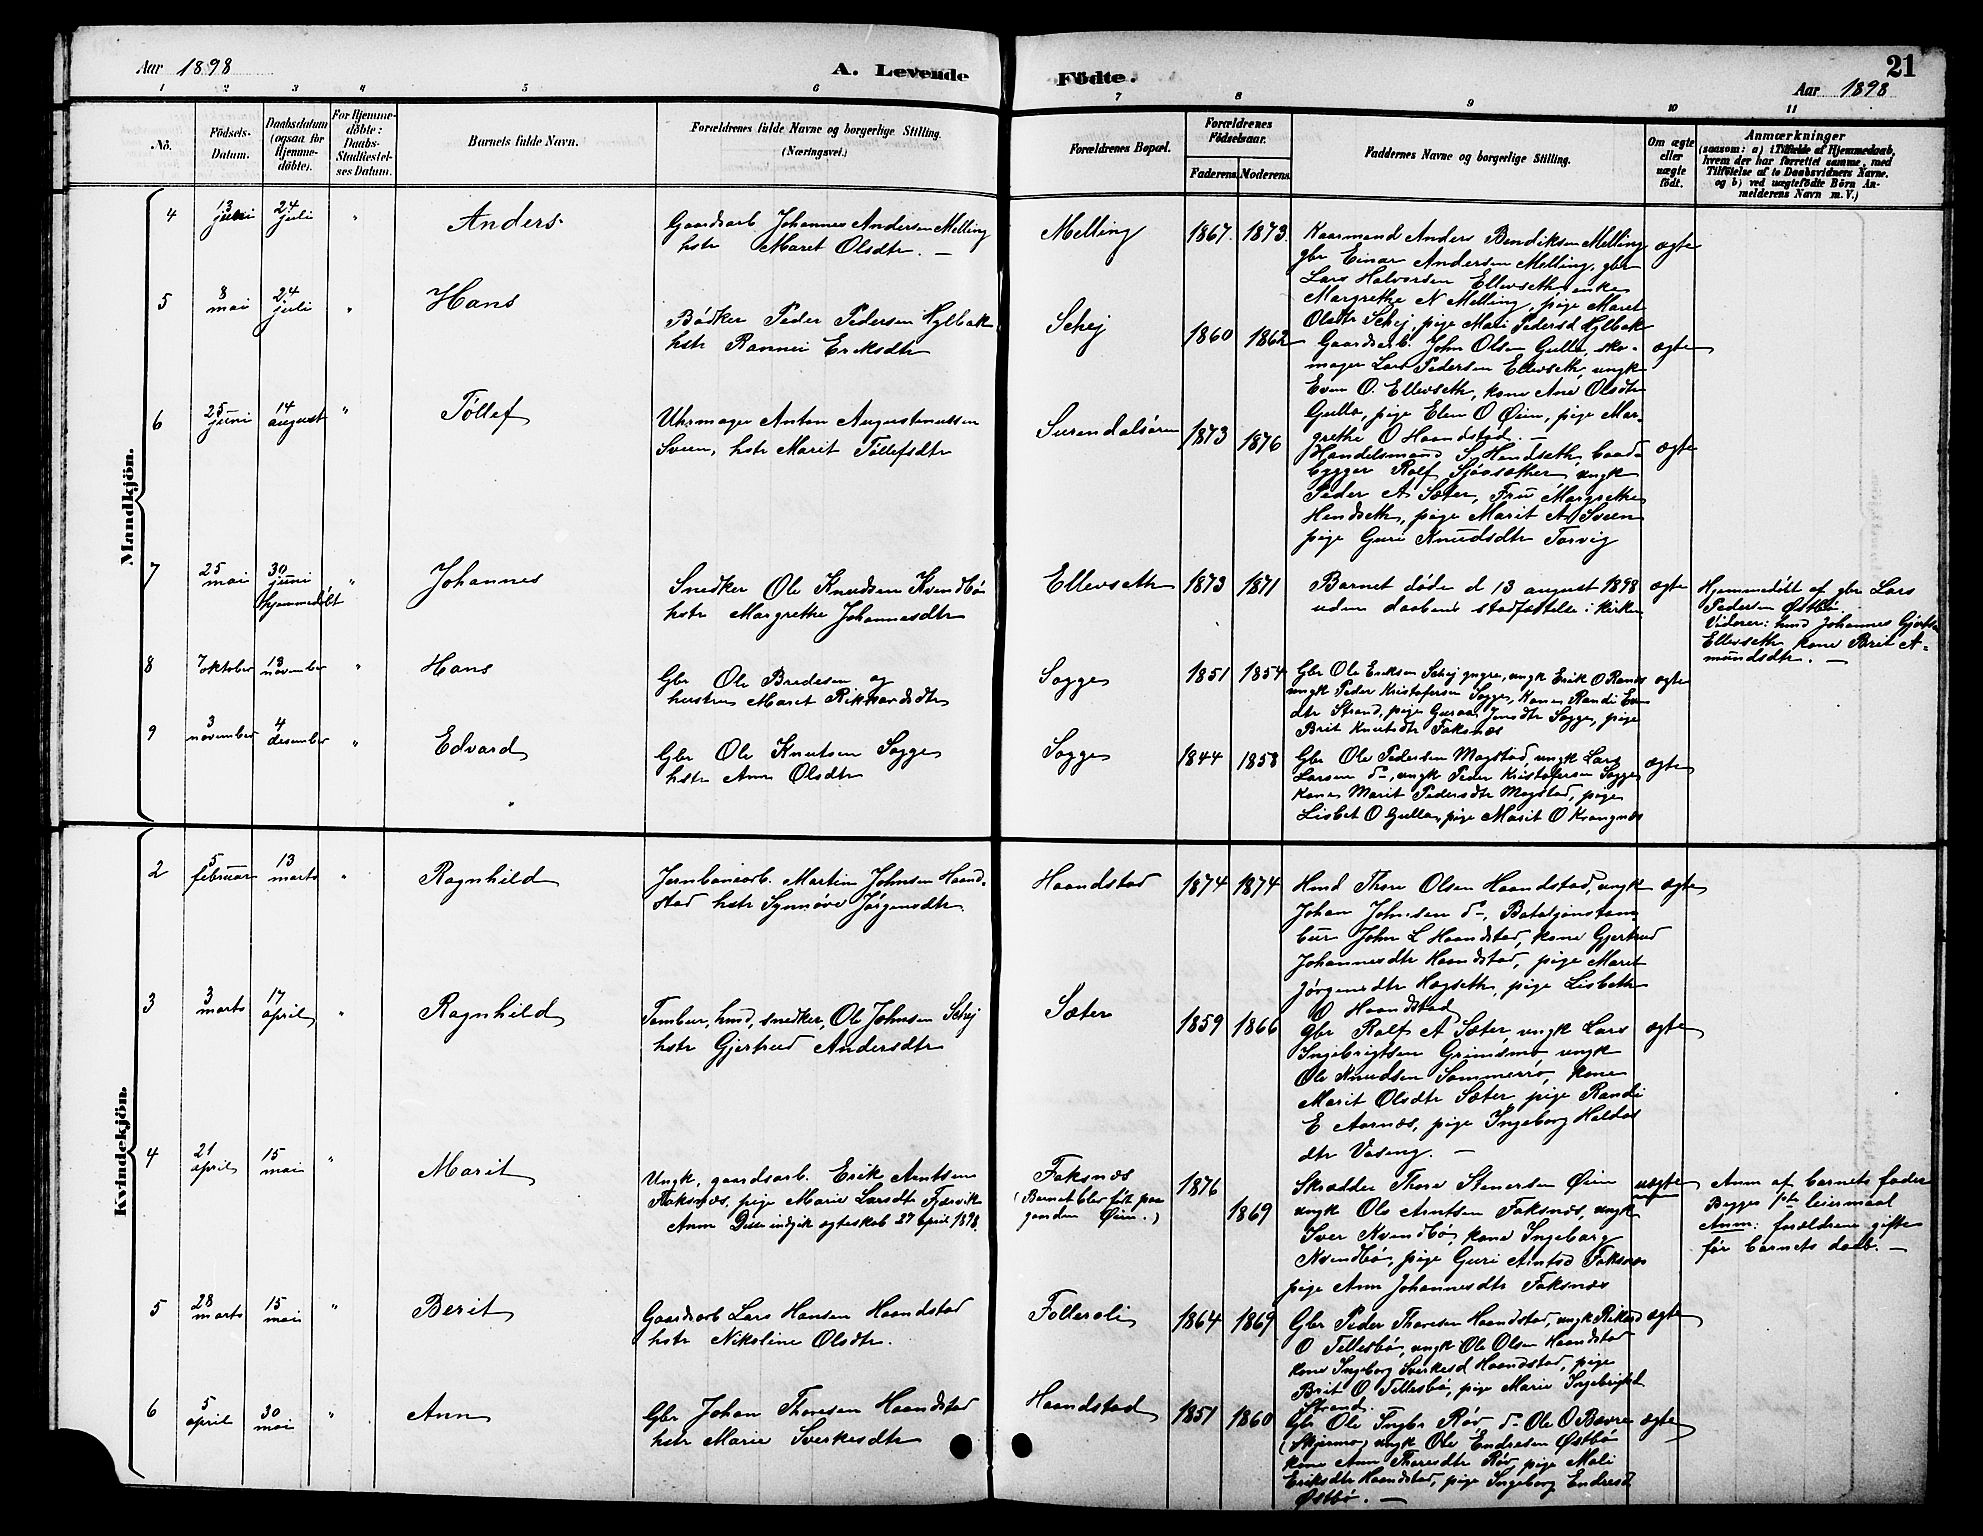 Aar 1898
A. Levende Födte.
21
Aar 1898
1 2 3 4 5 6 7 8 9 10 11
No.
Födsels-Datum.
Daabsdatum (ogsaa for Hjemme-döbte).
For Hjemme-döbte: Daabs-Stadfæstel-ses Datum.
Barnets fulde Navn.
Forældrenes fulde Navne og borgerlige Stilling.
(Næringsvei.)
Forældrenes Bopæl.
Forældrenes Födselsaar.
Faderens. Moderens.
Faddernes Navne og borgerlige Stilling.
Om ægte eller uægte födt.
Anmærkninger
(saasom: a) i Tilfælde af Hjemmedaab,
hvem der har forrettet samme, med
Tilföielse af to Daabsvidners Navne.
og b) ved uægtefödte Börn An-
melderens Navn m. V.)
Mandkjön.
4 13 juni 24 juli " Anders
Gaardsarb Johannes Andersen Melling
hstr Maret Olsdtr. —
Melling 1867. 1873.
Kaarmand Anders Bendiksen Melling
gbr Einar Andersen Melling, gbr
Lars Halvorsen Ellevseth, enke
Margrethe N Melling, pige Maret
Olsdtr Schej, pige Mari Pedersd Hylbak
ægte
5 8 mai 24 juli " Hans
Bødker Peder Pedersen Hylbak
hstr Rannei Eriksdtr
Schej 1860 1862
Gaardsarb. John Olsen Gulla, sko-
mager Lars Pedersen Ellevseth, ungk
Even O. Ellevseth, kone Ane Olsdtr
Gulla, pige Elen O Øien, pige Mar-
grethe O Haandstad. —
ægte
6 25 juni 14 august " Tøllef
Uhrmager Anton Augustinussen
Sveen, hstr Marit Tøllefsdtr
Surendalsøren 1873 1876
Handelsmand S Hendseth, baad-
bygger Rolf Sjøesæther, ungk
Peder A Sæter, Fru Margrethe
Hendseth, pige Marit A Sveen
pige Guri Knudsdtr Torvig
ægte
7 25 mai 30 juni hjemmedøbt " Johannes
Snedker Ole Knudsen Kvendbø
hstr Margrethe Johannesdtr
Ellevseth 1873 1871
Barnet døde d 13 august 1898
uden daabens stadfæstelse i kirken
ægte
Hjemmedøbt af gbr Lars
Pedersen Østbø.
Vidner: hmd Johannes
Ellevseth, kone Brit A-
mundsdtr. —
8 7 oktober 13 november " Hans
Gbr Ole Bredesen og
hustru Maret Rikhardsdtr
Sogge 1851 1854
Gbr Ole Eriksen Schej yngre, ungk Erik O Rands
ungk Peder Kristofersen Sogge, Kone Randi Ens
dtr Strand, pige Guraa Jonsdtr Sogge, pige
Brit Knutsdtr Faksnæs
ægte
9 3 november 4 desember " Edvard
Gbr Ole Knutsen Sogge
hstr Ann Olsdtr
Sogge 1844 1858
Gbr Ole Pedersen Mogstad, ungk Lars
Larsen d–, ungk Peder Kristofersen Sogge
Kone Marit Pedersdtr Mogstad, pige
Lisbet O Gulla, pige Marit O Krangnæs
ægte
Kvindekjön.
2 5 februar 13 marts " Ragnhild
Jernbanearb. Martin Johnsen Haand-
stad hstr Synnøve Jørgensdtr.
Haandstad 1874 1874
Hmd Thore Olsen Haandstad, ungk
Johan Johnsen d–, Bataljonstam-
bur John L Haandstad, kone Gjertrud
Johannesdtr Haandstad, pige Maret
Jørgensdtr Høgseth, pige Lisbeth
O Haandstad
ægte
3 3 marts 17 april " Ragnhild
Tambur, hmd, snedker, Ole Johnsen Schej
hstr Gjertrud Andersdtr
Sæter 1859 1866
Gbr Rolf A Sæter, ungk Lars
Ingebrigtsen Grimsmo ungk
Ole Knudsen Sommerrø, kone
Marit Olsdtr Sæter, pige Randi
E Aarnæs, pige Ingeborg Haldos
dtr Vaseng. —
ægte
4 21 april 15 mai " Marit
Ungk, gaardsarb. Erik Arntsen
Faksnæs, pige Marie Larsdtr
Anm Disse indgik ægteskab 27 april 1898.
Faksnæs
(Barnet blev født paa
gaarden Øien.)
1876 1869
Skrædder Thore Stenersen Øien
ungk Ole Arntsen Faksnæs, ungk
Iver Kvendbø, kone Ingeborg
Kvendbø, pige Guri Arntsd Faksnæs
pige Ann Johannesdtr Faksnæs
uægte
Anm af barnets fader
Begges 1ste leiermaal
Anm: forældrene gifte
før barnets daab. —
5 28 marts 15 mai " Berit
Gaardsarb Lars Hansen Haandstad
hstr Nikoline Olsdtr.
Folleroli 1864 1869
Gbr Peder Thoresen Haandstad, ungk Rikard
O Tellesbø, ungk Ole Olsen Haandstad
kone Ingeborg Sverkesd Haandstad, pige
Brit O Tellesbø, pige Marie Ingebrigtd
Strand.
ægte
6 5 april 30 mai " Ann
Gbr Johan Thoresen Haandstad
hstr Marie Sverkesdtr
Haandstad 1851 1860
Gbr Ole Ingbr Røv d– Ole O Bævre
(Skjermo) ungk Ole Endresen Østbø
kone Ann Thoresdtr Røv, pige Mali
Eriksdtr Haandstad, pige Ingeborg Endresd
Østbø. —
ægte